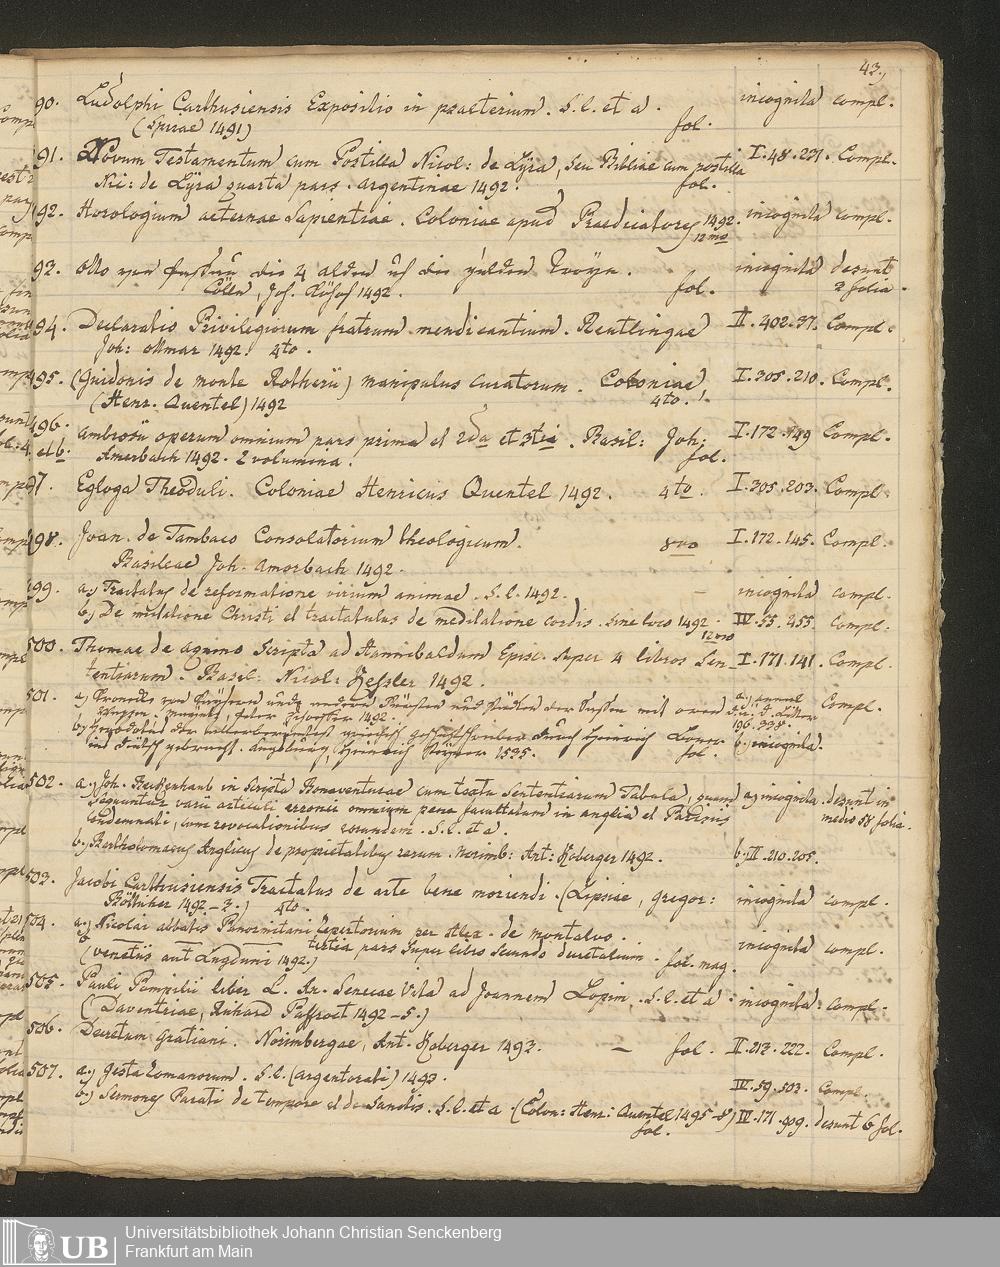 43.
90. Ludolphi Carthusiensis Expositio in psaeterium. S. l. et a. incognita compl.
(Spirae 1491) fol.
91. Novum Testamentum cum Postilla Nicol: de Lÿra, seu Bibliae cum postilla I. 48. 231. Compl.
Nic: de Lÿra quarta pars. argentinae 1492. fol.
92. Horologium aeternae Sapientiae. Coloniae apud Praedicatores 1492. incognita compl.
12mo
93. Otto von die 4 alden die gulden incognita desunt
Cölln, Joh. 1492. fol. 2 folia.
94. Declaratio Privilegiorum fratrum mendicantium. Reutlingae II. 402. 37. Compl.
Joh: ottmar 1492. 4to.
495. (Guidonis de monte Rotherii) manipulus curatorum. Coloniae I. 305. 210. Compl.
(Henr. Quentel) 1492 4to.
496. ambrosii operum omnium pars prima et 2da et 3tia. Basil: Joh: I. 172. 149 Compl.
et b. Amerbach 1492. 2 volumina. fol.
97. Egloga Theoduli. Coloniae Henricus Quentel 1492. 4to. I. 305. 203. Compl.
98. Joan. de Tambaco Consolatorium theologicum. 8vo I. 172. 145. Compl.
Basileae Joh. Amorbach 1492.
499. a.) Tractatus de reformatione virium animae. S. l. 1492. incognita compl.
b.) De imitatione Christi et tractatulus de meditatione cordis. sine loco 1492. IV. 55. 455. compl.
12mo
500. Thomae de aquino Scripta ad Hannibaldum Episc. super 4 libros Sen I. 171. 141. Compl.
tentiarum. Basil: Nicol: Kessler 1492.
501. a.) und der Sassen mit a.) Compl.
1492. 196. 338.
b.) Herodotus der Heinrich b.) incognita.
Augsburg, Heinrich Stayner 1535. fol.
502. a.) Joh. Beckenhaub in Scripta Bonaventurae cum textu Sententiarum Tabula, quam a) incognita. desunt in
sequuntur varii articuli erronii omnium pene facultatum in anglia et Parisius medio 58 folia.
condemnati, cum revocationibus eorundem. S. l. et a.
b.) Bartholomaeus Anglicus de proprietatibus rerum. Norimb: Ant: Koberger 1492. b.) II. 210. 205.
503. Jacobi Carthusiensis Tractatus de arte bene moriendi. (Lipsiae, gregor: incognita compl.
Böttiher 1492-3.) 4to.
504. a.) Nicolai abbatis Panormitani repertorium per Alex. de montalvo. incognita compl.
tertia pars super libro secundo decretalium. fol. mag.
(venetiis aut Lugduni 1492.)
505. Pauli Pompilii liber L. An. Senecae Vita ad Joannem Lopin, S. l. et a: incognita: compl.
(Daventriae, Richard Paffroet 1492-5.)
506. Decretum gratiani. Norimbergae, Ant. Koberger 1493. — fol. II. 212. 222. Compl.
507. a.) gesta Romanorum. S. l. (argentorati) 1493. IV. 59. 503. Compl.
b.) Sermones Parati de tempore et de Sanctis. S. l. et a. (Colon: Henr: Quentel 1495-8) IV. 171. 909. desunt 6 fol.
fol.
Universitätsbibliothek Johann Christian Senckenberg
Frankfurt am Main
UB